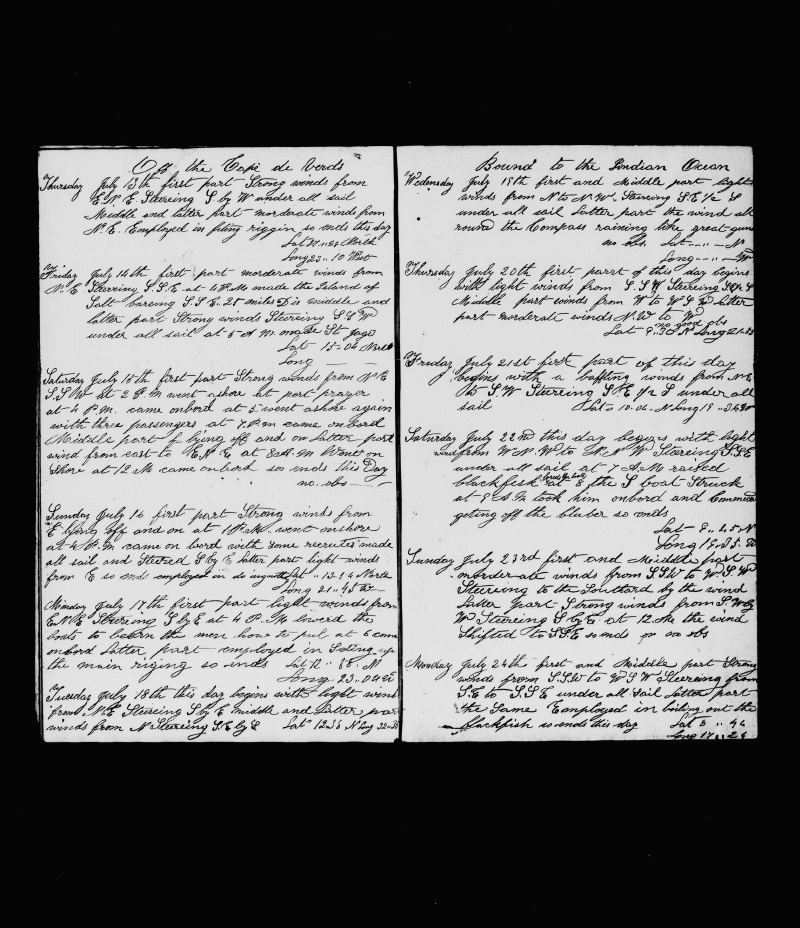 Off the Cape de Verds
Thursday July 13th first part Strong winds from
E.N.E. Steereing S by W under all sail
Middle and latter part morderate winds from
N.E. Employed in fiting riggin so ends this day
Lat 17 North
Long 23 .. 10 West
Friday July 14th first part morderate winds from
N.E Steereing S.S.E at 4 P.M made the Island of
Salt bareing S.S.E. 25 miles Dis middle and
latter part Strong winds Steereing S S W
under all sail at 5 A.M. made St Jago
Lat 15-04 North
Long
Saturday July 15th first part Strong winds from N E
S.S W at 2 P M went ashore at port prayer
at 4 P.M. came onbord at 5 went ashore again
with three passengers at 7 P.m came onbord
Middle part of lying off and on latter part
wind from east to E N E at 8 A.M Went on
Shore at 12 M came onbord so ends this Day
no obs
Sunday July 16 first part Strong winds from
E lying off and on at 1 P.M. went onshore
at 4 P.M came on bord with some recruites made
all sail and Steered S by E latter part light winds
from E so ends employed in Lat 13.14 North
Long 21 .. 45 W
Monday July 17th first part light winds from
E N E Steereing S by E at 4 P.M lowered the
boats to learn the men how to pul at 6 came
onbord latter part employed in
the main riging so ends Lat 12 .. 58 .. N
Long 23 .. 04 W
Tuesday July 18th this day begins with light winds
from N.E Steereing S by E middle and latter part
winds from N Steereing S.E by S Lat 12 N Long
Bound to the Indian Ocean
Wednesday July 19th first and Middle part light
winds from N to N.W. Steereing S.E 1/2 S
under all sail latter part the wind all
round the Compass raining like great guns
no obs Lat - .. - N
Long - .. - W
Thursday July 20th first parrt of this day begins
with light winds from S.S W Steereing
Middle part winds from W to W S W latter
part morderate winds N.W to W
no good obs
Lat 9.30 N Long 21
Friday July 21st first part of this day
begins with a baffling winds from N E
to S.W Steereing S.E 1/2 S under all
sail Lat 10-04-N Long 19
Saturday July 22nd this day begins with light
wind from W.N.W. to N.N W Steereing S.S.E
under all sail at 7 A.M raised
blackfish at 8 the S boat Struck
at 8 A.M took him onbord and Commenced
geting off the bluber so ends
Lat 8 .. 45 N
Long 18 .. 35 W
Sunday July 23rd first and Middle part
morder-ate winds from S.S.W to W.S.W
Steereing to the Southard by the wind
latter part Strong winds from S.W by
W Steereing S by E at 12 M the wind
Shifted to S.S.E so ends no obs
Monday July 24th first and Middle part Strong
winds from S.S.W to W S W Steereing from
S.E to S.S.E under all sail latter part
the Same Employed in boiling out the
blackfish so ends this day Lat 5 .. 46
Long 17 .. 29